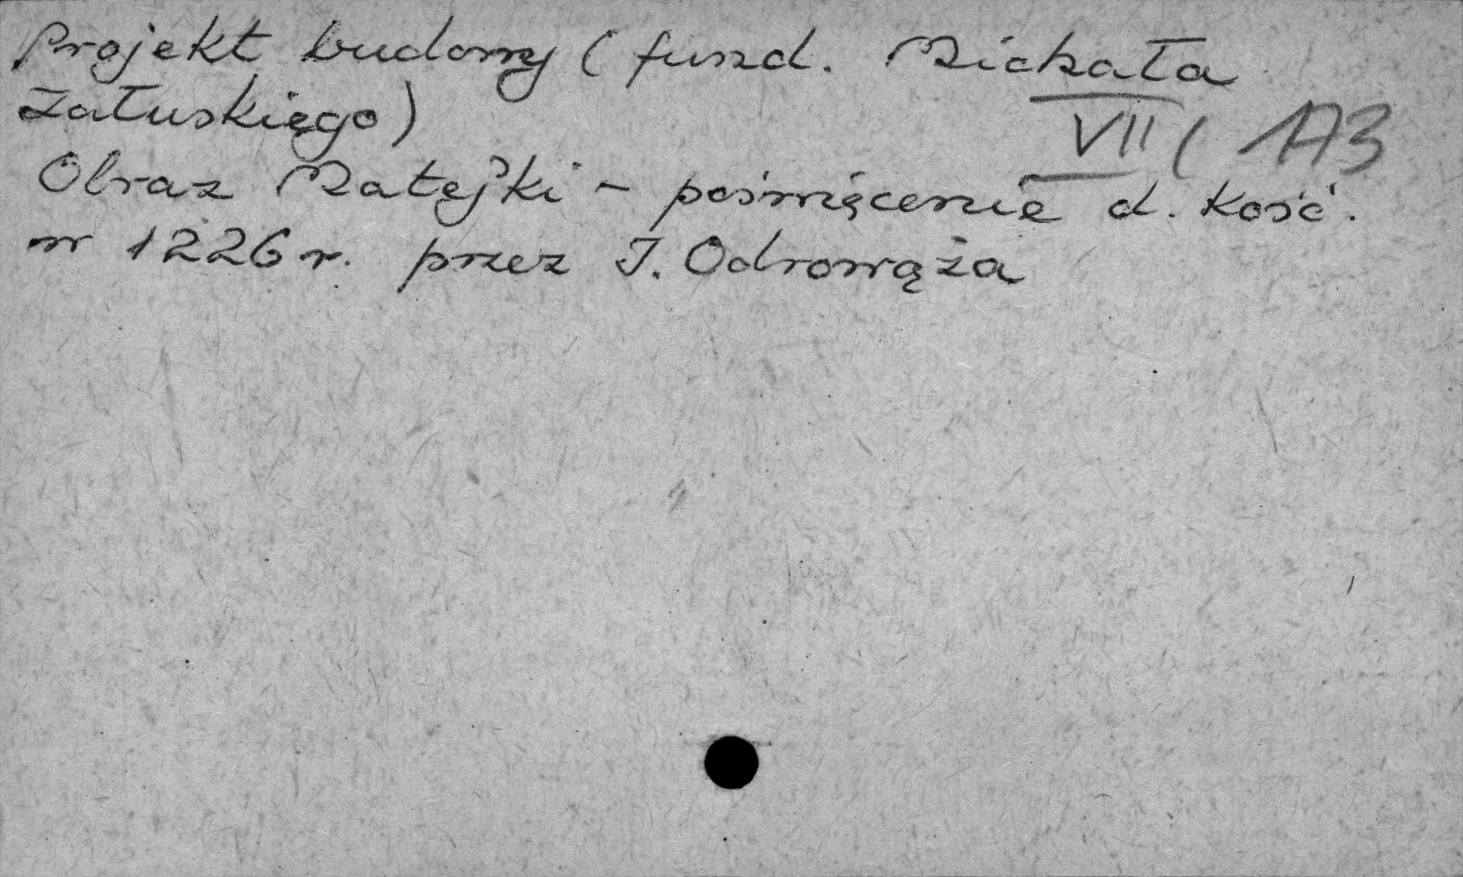 Projekt budowy (fund. Michała
Załuskięgo)
VII ( 173
Obraz Matejki - poświęcenie d. Kość.
w 1226 r. przez I. Odrowąża